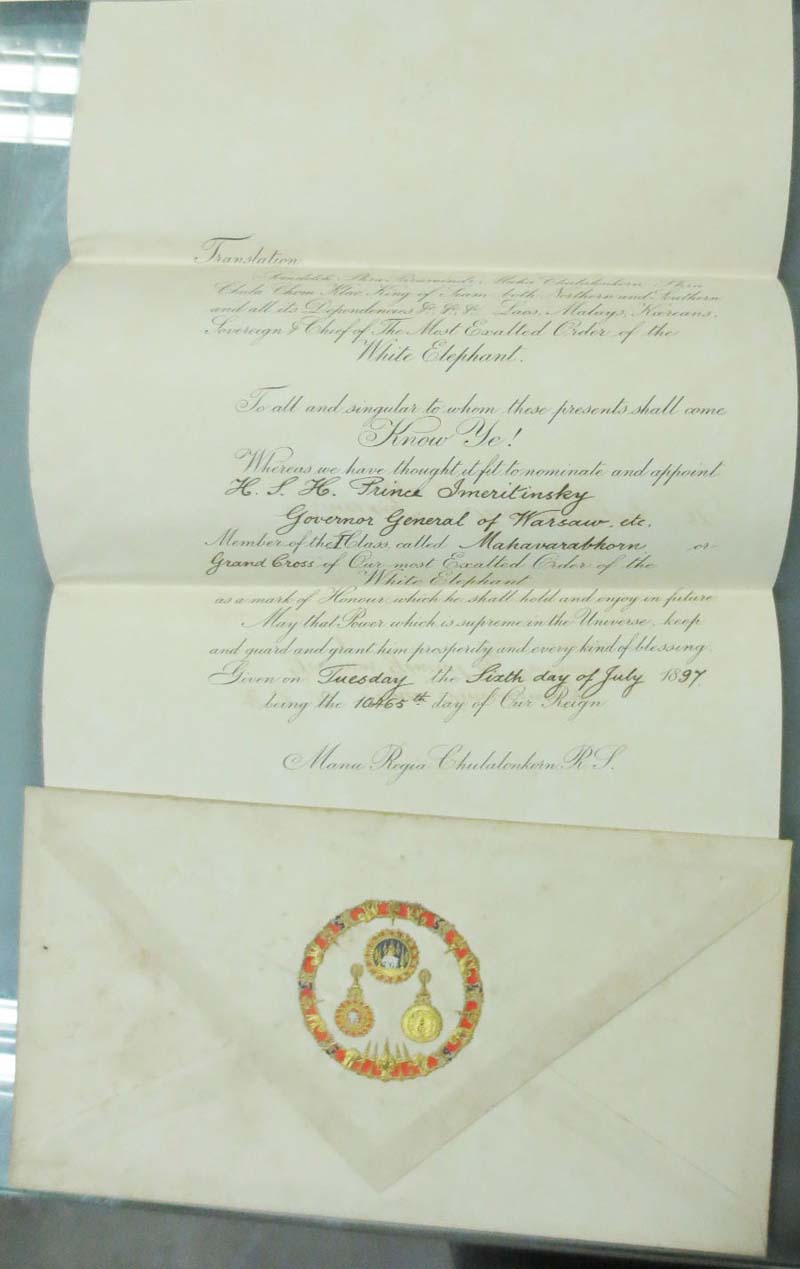 Translation
Maha Chulalonkorn Phra
Chula Chom Klao King of Siam both Northern and Southern
and all its Dependencies &. &. & Laos, Malays, Kareans,
Sovereign & Chief of The Most Exalted Order of the
White Elephant.
To all and singular to whom these presents shall come
Know Ye!
Whereas we have thought it fit to nominate and appoint
H. S. H. Prince Imeritinsky
Governor General of Warsaw. etc.
Member of the I Class called Mahavarabhorn or
Grand Cross of Our most Exalted Order of the
White Elephant
as a mark of Honour which he shall hold and enjoy in future
May that Power which is supreme in the Universe, keep
and guard and grant him prosperity and every kind of blessing.
Given on Tuesday the Sixth day of July 1897
being the 10465th day of Our Reign
Manu Regia Chulalonkorn R. S.